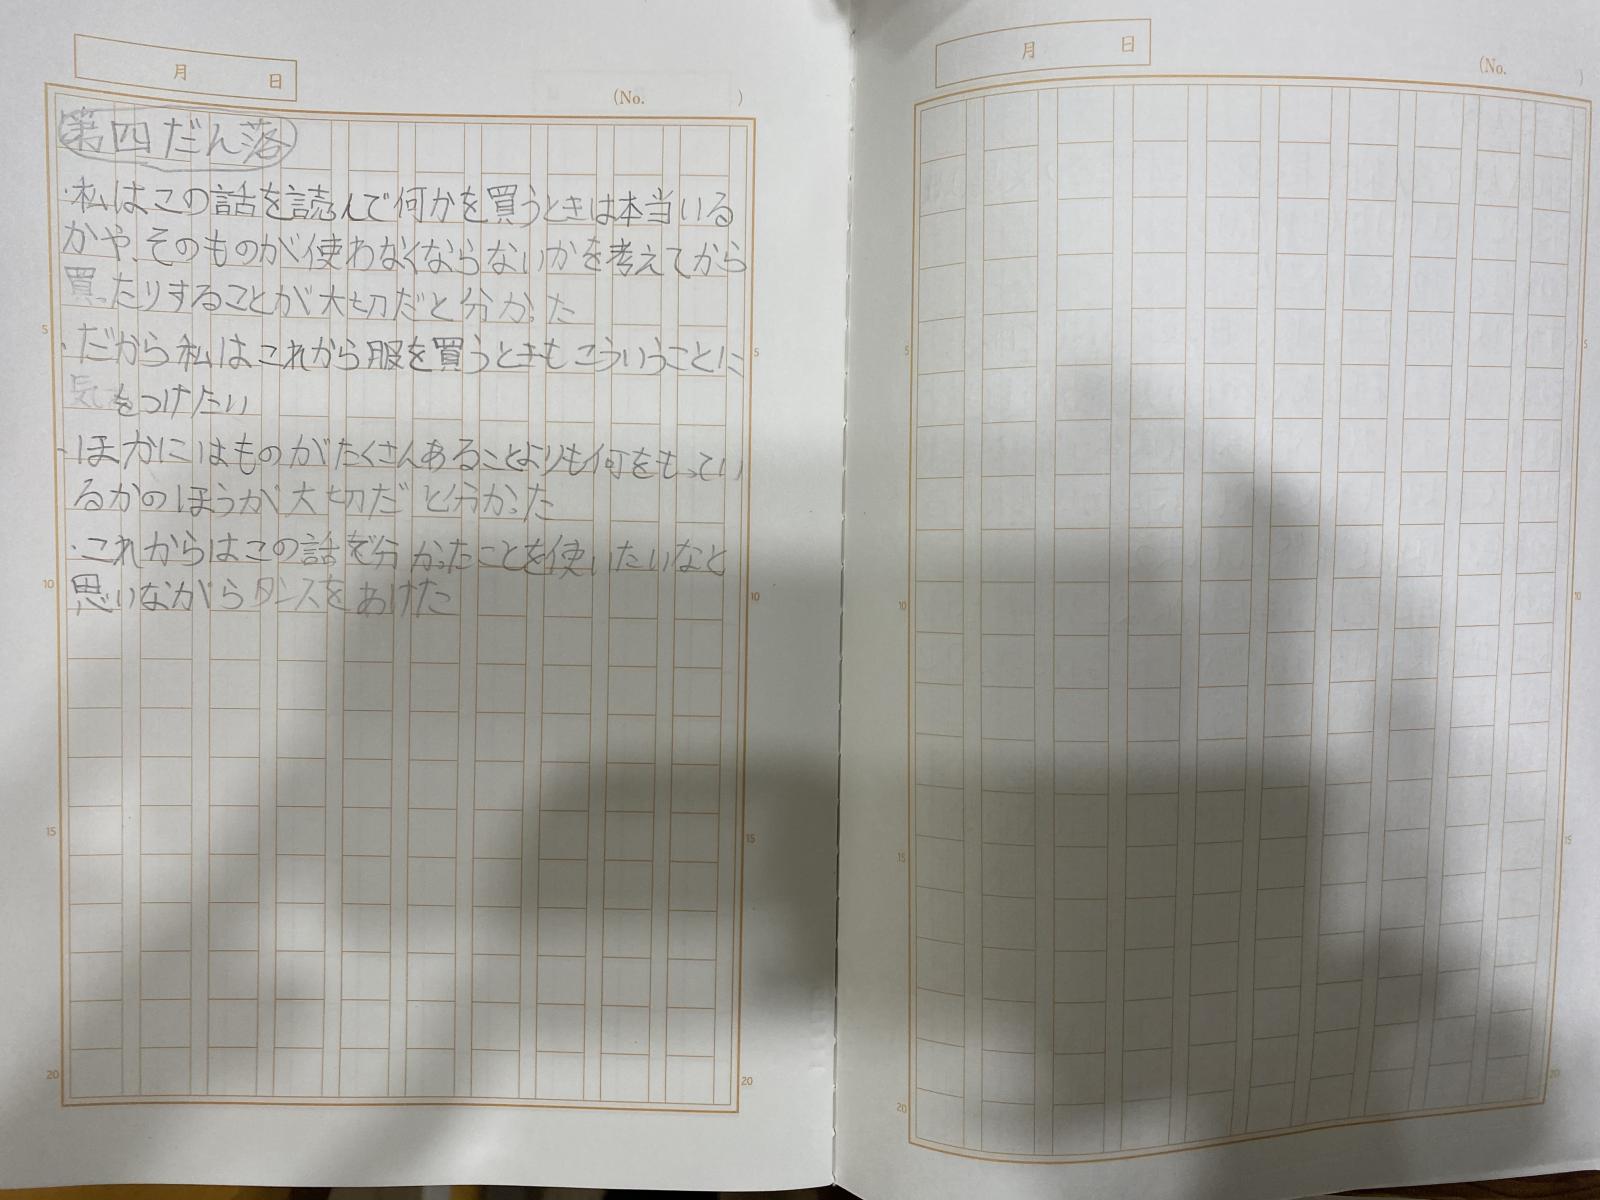 月 日
(No. )
第四だん落
・私はこの話を読んで何かを買うときは本当いる
かや、そのものが使わなくならないかを考えてから
買ったりすることが大切だと分かった
・だから私はこれから服を買うときもこういうことに
気をつけたい
・ほかにはものがたくさんあることよりも何をもってい
るかのほうが大切だと分かった
・これからはこの話で分かったことを使いたいなと
思いながらタンスをあけた
5
10
15
20
5
10
15
20
月 日
(No. )
5
10
15
20
5
10
15
20